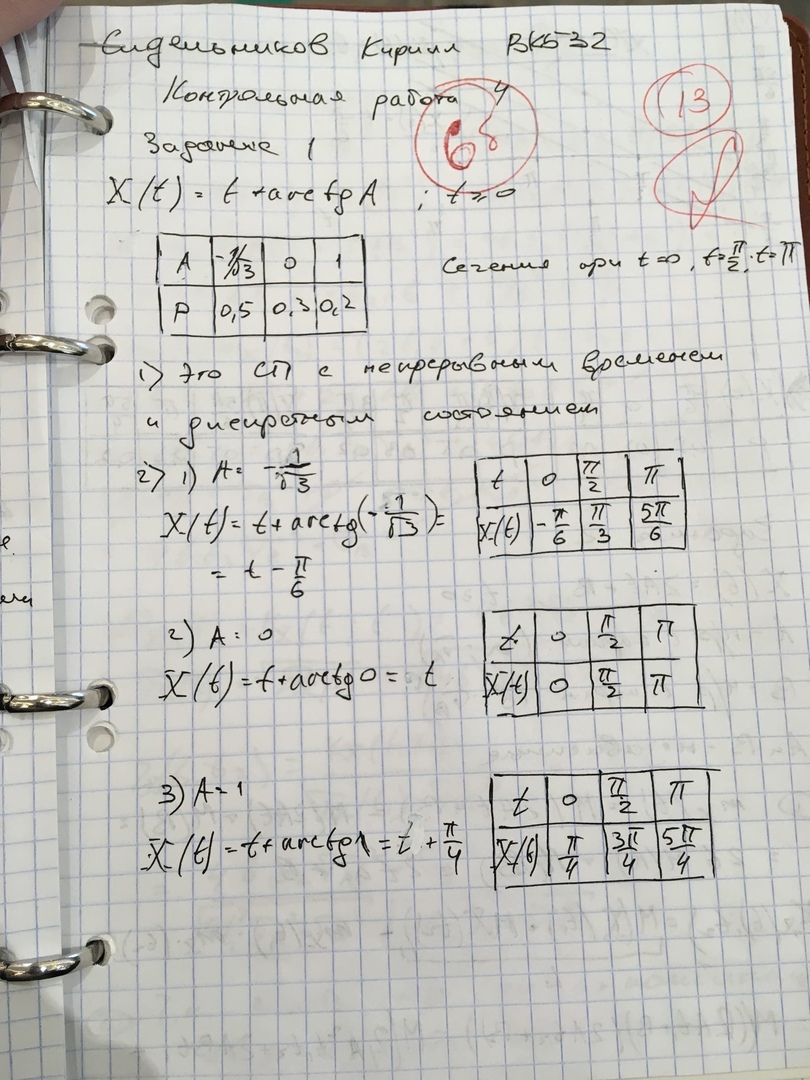 Сидельников Кирилл ВКБ32
Контрольная работа
4
68
13
Задание 1
X(t) = t + arctg A ; t ≥ 0
A | -1/√3 | 0 | 1
P | 0,5 | 0,3 | 0,2
Сечения при t=0, t=π/2, t=π
1> Это СП с непрерывным временем
и дискретным состоянием
2> 1) A = -1/√3
X(t) = t + arctg(-1/√3) =
= t - π/6
t | 0 | π/2 | π
X(t) | -π/6 | π/3 | 5π/6
2) A = 0
X(t) = t + arctg 0 = t
t | 0 | π/2 | π
X(t) | 0 | π/2 | π
3) A = 1
X(t) = t + arctg 1 = t + π/4
t | 0 | π/2 | π
X(t) | π/4 | 3π/4 | 5π/4